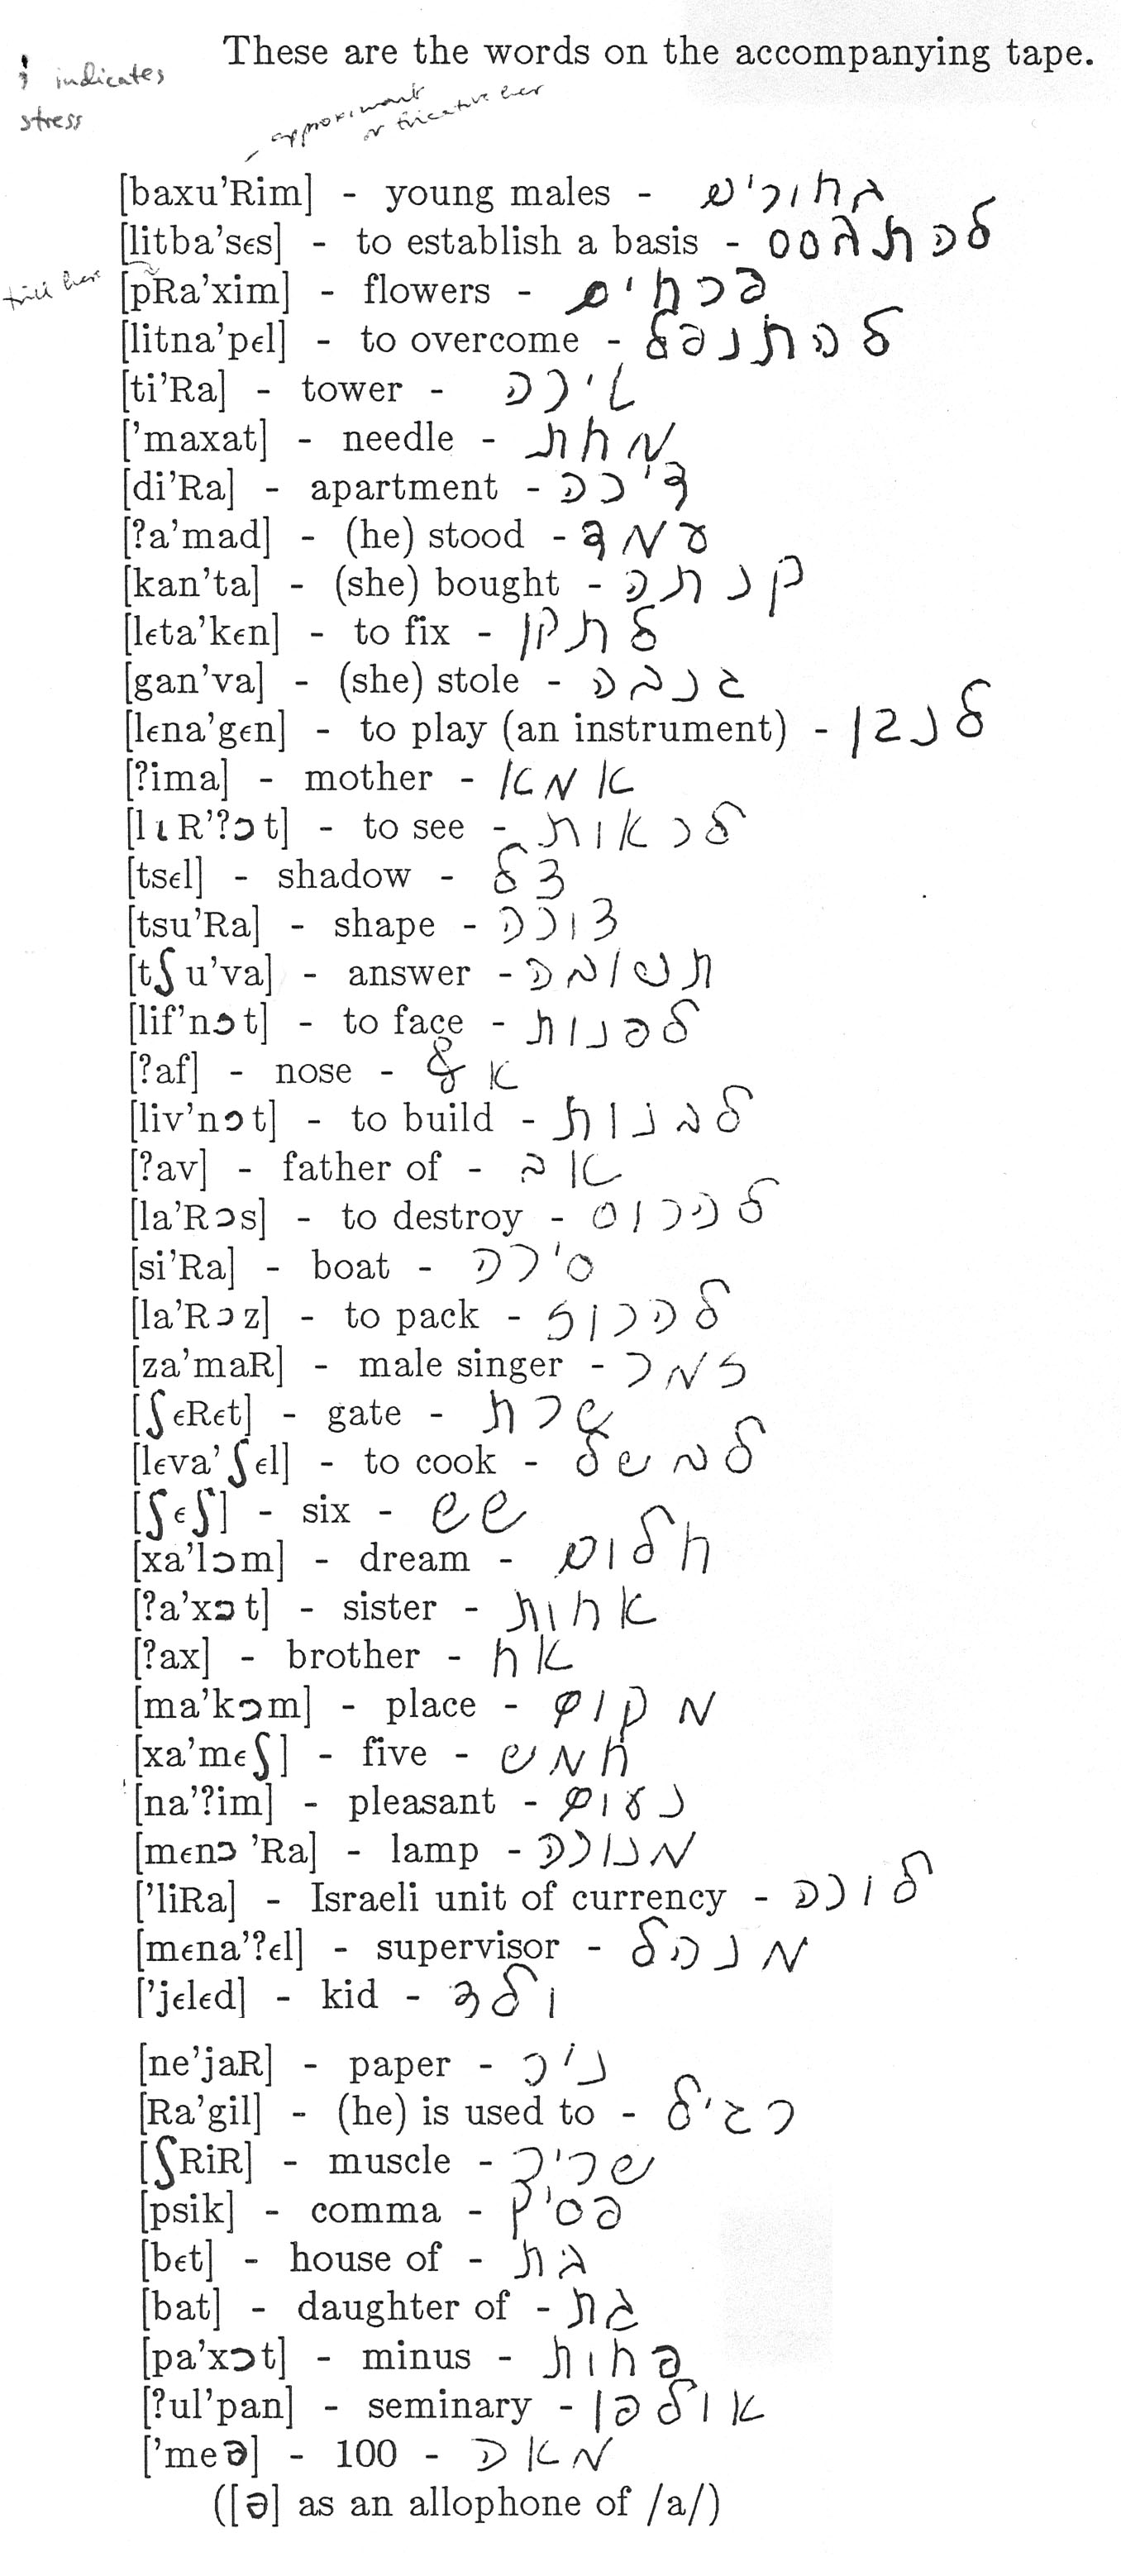 These are the words on the accompanying tape.
; indicates
stress
approximant
or fricative here
[baxu'Rim] - young males - בחורים
[litba'sɛs] - to establish a basis - להתבסס
trill here
[pRa'xim] - flowers - פרחים
[litna'pɛl] - to overcome - להתנפל
[ti'Ra] - tower - טירה
['maxat] - needle - מחת
[di'Ra] - apartment - דירה
[?a'mad] - (he) stood - עמד
[kan'ta] - (she) bought - קנתה
[lɛta'kɛn] - to fix - לתקן
[gan'va] - (she) stole - גנבה
[lɛna'gɛn] - to play (an instrument) - לנגן
[?ima] - mother - אמא
[lɩR'?ɔt] - to see - לראות
[tsɛl] - shadow - צל
[tsu'Ra] - shape - צורה
[tʃu'va] - answer - תשובה
[lif'nɔt] - to face - לפנות
[?af] - nose - אף
[liv'nɔt] - to build - לבנות
[?av] - father of - אב
[la'Rɔs] - to destroy - להרוס
[si'Ra] - boat - סירה
[la'Rɔz] - to pack - להרוז
[za'maR] - male singer - זמר
[ʃɛRɛt] - gate - שרת
[lɛva'ʃɛl] - to cook - לבשל
[ʃɛʃ] - six - שש
[xa'lɔm] - dream - חלום
[?a'xɔt] - sister - אחות
[?ax] - brother - אח
[ma'kɔm] - place - מקום
[xa'mɛʃ] - five - חמש
[na'?im] - pleasant - נעים
[mɛnɔ'Ra] - lamp - מנורה
['liRa] - Israeli unit of currency - לירה
[mɛna'?ɛl] - supervisor - מנהל
['jɛlɛd] - kid - ילד
[ne'jaR] - paper - ניר
[Ra'gil] - (he) is used to - רגיל
[ʃRiR] - muscle - שריר
[psik] - comma - פסיק
[bɛt] - house of - בת
[bat] - daughter of - בת
[pa'xɔt] - minus - פחות
[?ul'pan] - seminary - אולפן
['meə] - 100 - מאה
([ə] as an allophone of /a/)